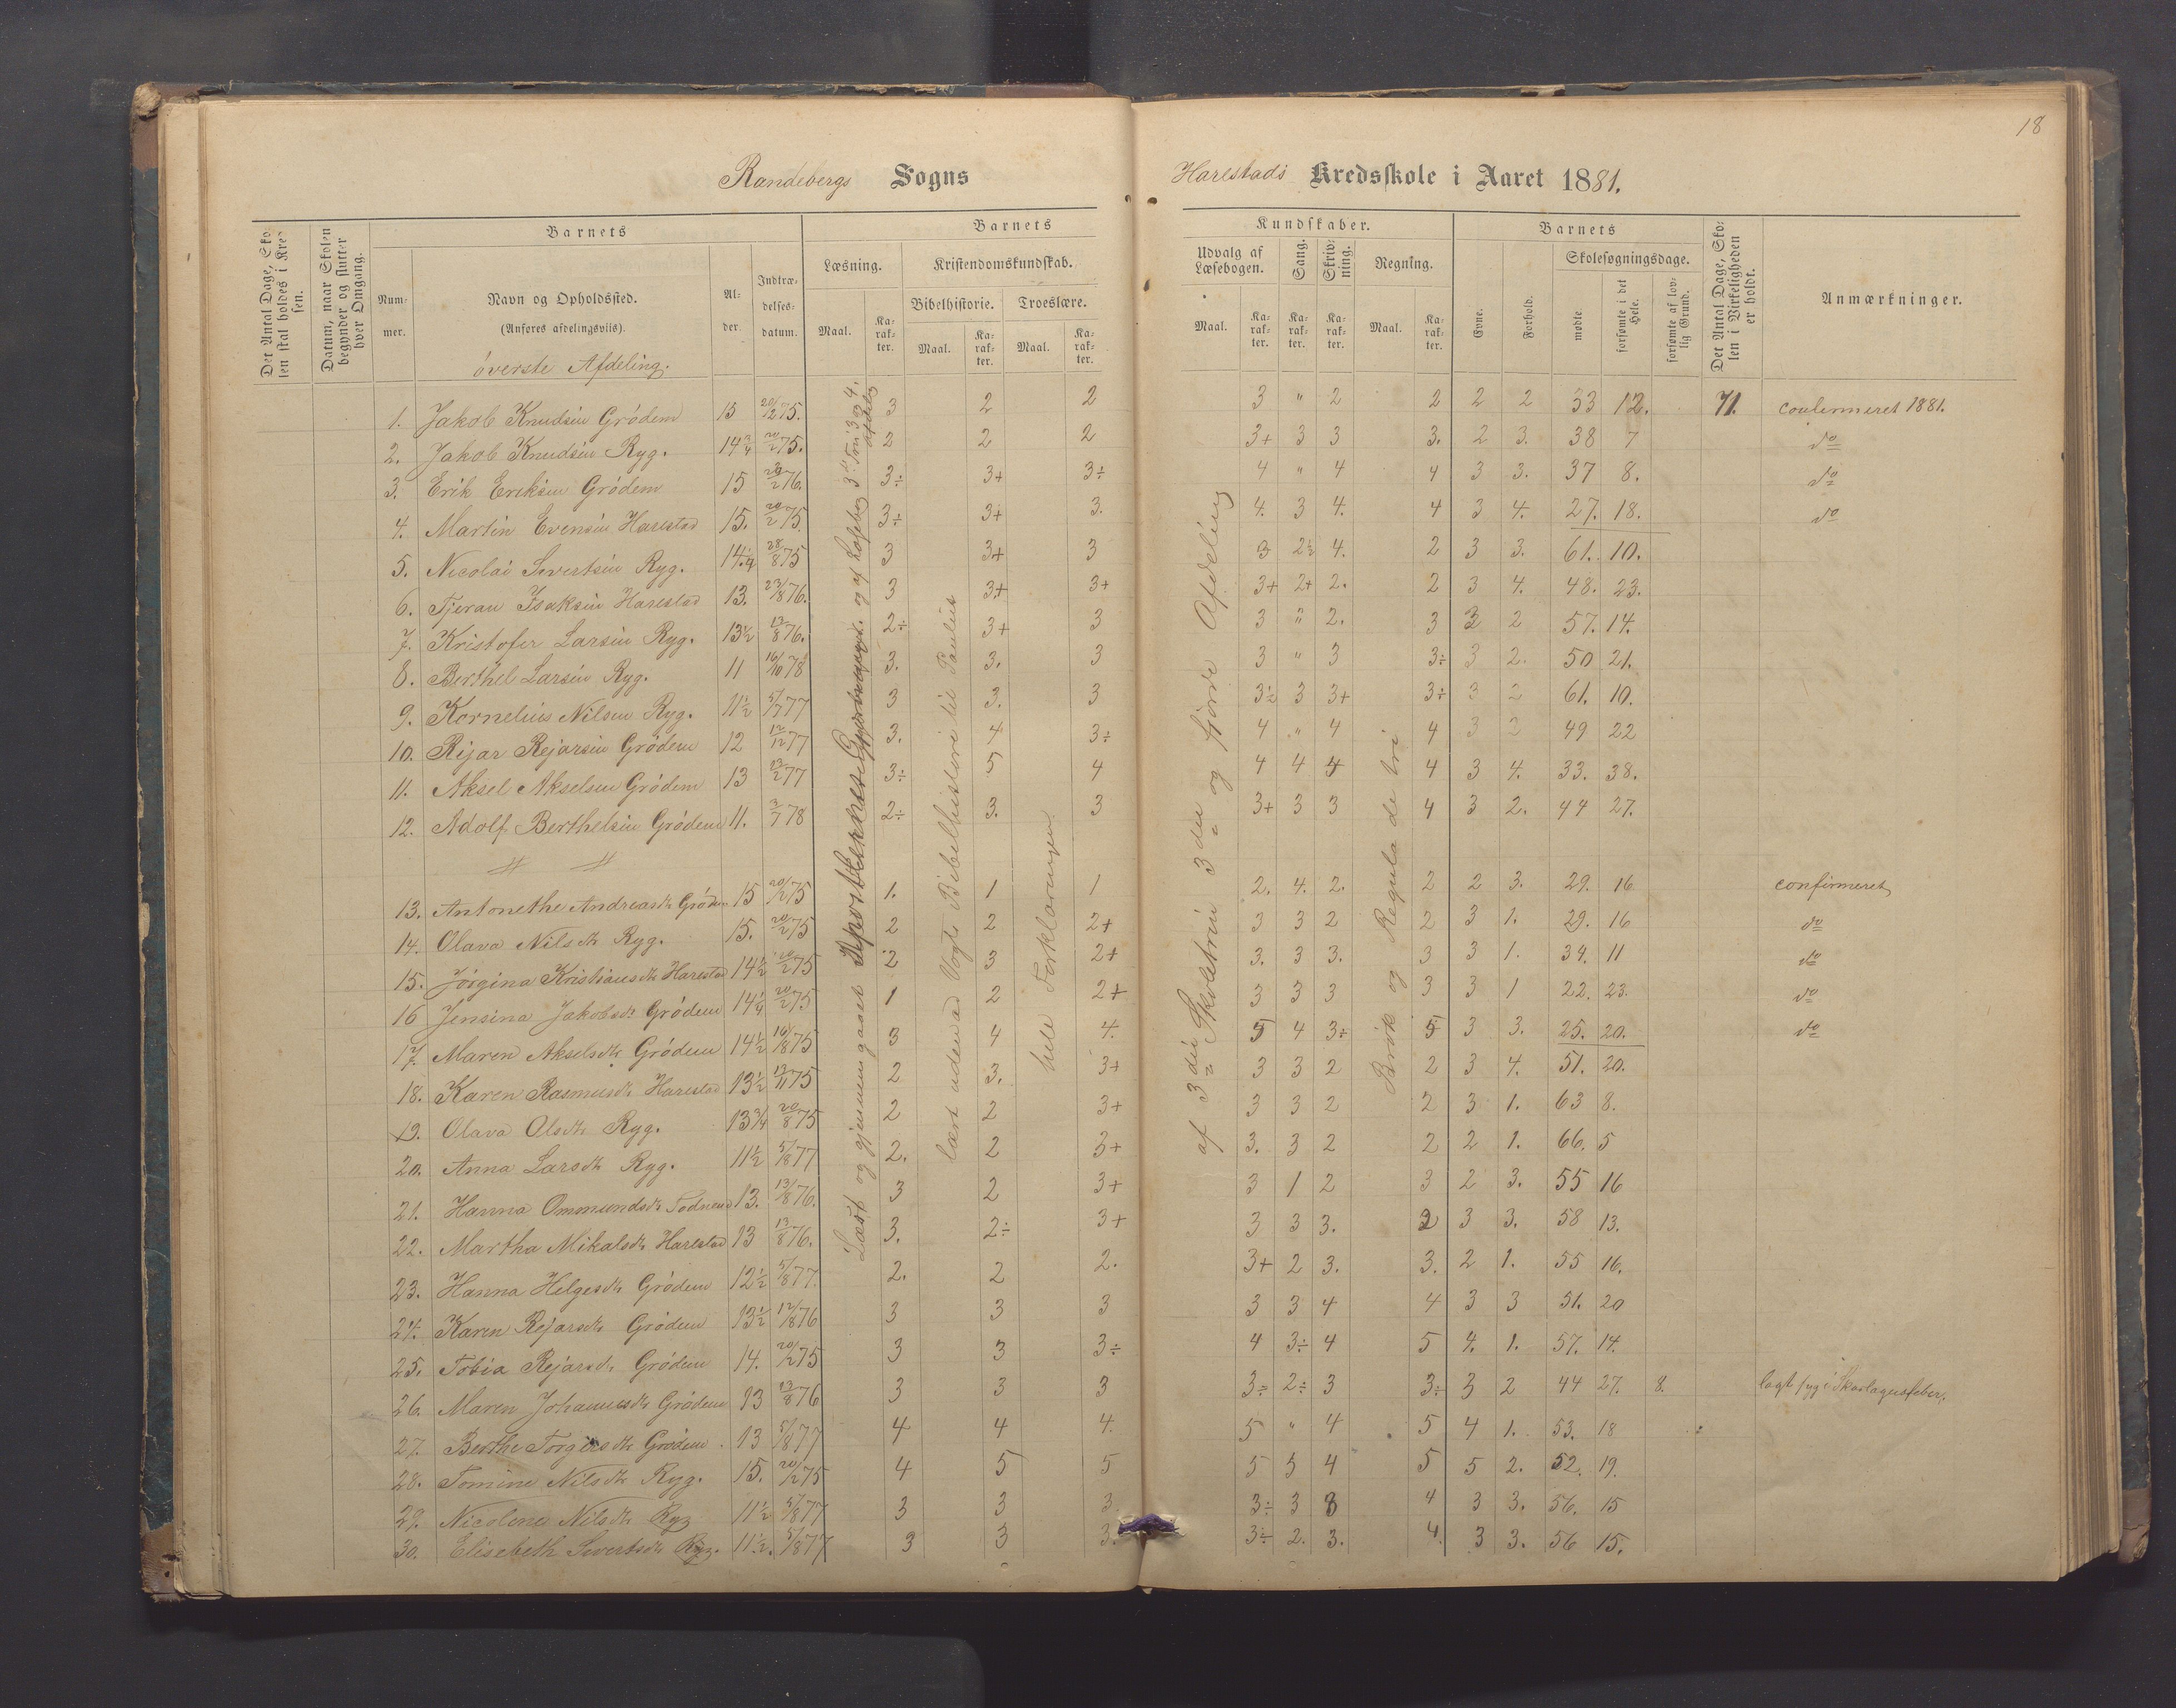 18
Randebergs Sogns
Harestads Kredsskole i Aaret 1881.
Det Antal Dage, Skolen skal holdes i Kredsen.
Datum, naar Skolen begynder og slutter hver Omgang.
Barnets
Nummer.
Navn og Opholdssted.
(Anføres afdelingsviis).
Alder.
Indtrædelsesdatum.
Barnets
Læsning.
Kristendomskundskab.
Bibelhistorie.
Troeslære.
Maal.
Karakter.
Maal.
Karakter.
Maal.
Karakter.
Kundskaber.
Udvalg af Læsebogen.
Sang.
Skrivning.
Regning.
Maal.
Karakter.
Karakter.
Karakter.
Maal.
Karakter.
Barnets
Evne.
Forhold.
Skolesøgningsdage.
mødte
forsømte i det Hele.
forsømte af lovlig Grund.
Det Antal Dage, Skolen i Virkeligheden er holdt.
Anmærkninger.
øverste Afdeling.
1. Jakob Knudsen Grødem 15 20/12 75. 3 2 2 3 " 2 2 2 2 33 12. 71. confirmeret 1881.
2. Jakob Knudsen Ryg. 14 3/4 20/2 75. 2 2 2 3+ 3 3 3. 2 3. 38 7 do
3. Erik Eriksen Grødem 15 29/2 76. 3÷ 3+ 3÷ 4 " 4 4 3 3. 37 8. do
4. Martin Evensen Harestad 15. 20/2 75 3÷ 3+ 3. 4. 3 4. 4 3 4. 27. 18. do
5. Nicolai Sivertsen Ryg. 14 1/4 28/8 75 3 3+ 3 3 2½ 4. 2 3 3. 61. 10.
6. Tjeran Isaksen Harestad 13. 23/8 76. 3 3+ 3+ 3+ 2+ 2. 2 3 4. 48. 23.
7. Kristofer Larsen Ryg. 13½ 13/8 76. 2÷ 3+ 3 3 " 2. 3 3 2 57. 14.
8. Berthel Larsen Ryg. 11 16/10 78 3. 3. 3 3 " 3 3÷ 3 2. 50 21.
9. Kornelius Nilsen Ryg. 11½ 5/7 77 3 3. 3 3½ 3 3+ 3÷ 3 2 61. 10.
10. Rejar Rejarsen Grødem 12 12/12 77 3. 4 3÷ 4 " 4 4 3 2 49 22
11. Aksel Akselsen Grødem 13 13/2 77 3÷ 5 4 4 4 4 4 3 4. 33. 38.
12. Adolf Berthelsen Grødem 11. 3/7 78 2÷ 3. 3 3+ 3 3 4 3 2. 44 27.
13. Antonethe Andreasdt. Grødem 15 20/12 75 1. 1 1 2. 4. 2. 2 2 3. 29. 16 confirmeret
14. Olava Nilsdt. Ryg. 15. 20/2 75 2 2 2+ 3 3 2 2 3 1. 29. 16 do
15. Jørgina Kristiansdt. Harestad 14½ 20/2 75 2 3 2+ 3. 3 3. 3 3 1. 34. 11 do
16 Jensina Jakobsdt. Grødem 14¼ 20/2 75 1 2 2+ 3 3 3 3 3 1 22. 23. do
17. Maren Akselsdt. Grødem 14½ 16/8 75 3 4 4. 5 4 3÷ 5 3 3. 25. 20. do
18. Karen Rasmusdt. Harestad 13½ 13/11 75 2 3. 3+ 3 3 2 2 3 4. 51. 20.
19. Olava Olsdt. Ryg. 13 3/4 20/8 75 2 2 3+ 3 3 2 2 3 1. 63 8.
20. Anna Larsdt. Ryg. 11½ 5/8 77 2. 2 3+ 3. 3 2 2 2 1. 66. 5
21. Hanna Ommundsdt. Todnem 13. 13/8 76. 3 2 3+ 3 1 2 3 2 3. 55 16
22. Martha Mikalsdt. Harestad 13 13/8 76. 3. 2÷ 3+ 3 3 3. 2 3 3. 58 13.
23. Hanna Helgesdt. Grødem 12½ 5/8 77. 2. 2 2. 3+ 2 3. 3. 2 1. 55 16.
24. Karen Rejarsdt. Grødem 13½ 12/8 76 3 3 3 3 3 4 4 3 3 51. 20
25. Tobia Rejarsdt. Grødem 14. 20/12 75 3 3 3÷ 4 3÷ 4 5 4. 1. 57. 14.
26. Maren Johannesdt. Grødem 13 13/8 76 3 3 3 3÷ 2÷ 3 3÷ 3 2 44 27. 8. lagt syg i Skarlagensfeber.
27. Berthe Torgersdt. Grødem. 13 5/8 77 4 4 4. 5 " 4 5 4 1. 53. 18
28. Tomine Nilsdt. Ryg. 15. 20/12 75 4 5 5 5 5 4 5 5 2. 52. 19.
29. Nicoline Nilsdt. Ryg 11½ 5/8 77 3 3 3. 3÷ 3 3 4 3 3. 56. 15
30. Elisebeth Sivertsdt. Ryg. 11½. 5/8 77 3 3 3. 3÷ 2. 3. 4. 3 3. 56 15.
Læst og gjennemgaaet og af Læsebog 3die Trin 3 og 4. afdeling
lært udenad Vogts Bibelhistorie til Paulus
hele Forklaringen.
af 3die Skoletrin 3die og fjerde Afdeling
Brøk og Regula de tri